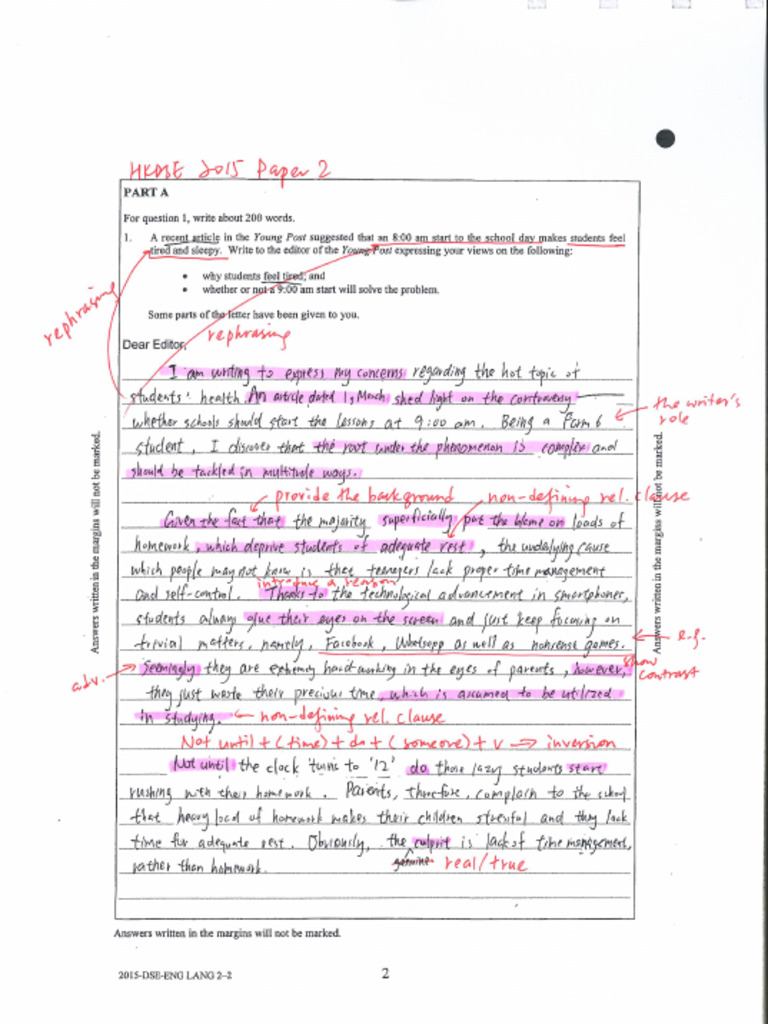 HKDSE 2015 Paper 2
PART A
For question 1, write about 200 words.
1. A recent article in the Young Post suggested that an 8:00 am start to the school day makes students feel
tired and sleepy. Write to the editor of the Young Post expressing your views on the following:
• why students feel tired; and
• whether or not a 9:00 am start will solve the problem.
rephrasing
Some parts of the letter have been given to you.
rephrasing
Dear Editor,
I am writing to express my concerns regarding the hot topic of
students' health. An article dated 1, March shed light on the controversy
whether schools should start the lessons at 9:00 am. Being a Form 6
the writer's role
student, I discover that the root under the phenomenon is complex and
should be tackled in multitude ways.
provide the background
non-defining rel. clause
Given the fact that the majority superficially put the blame on loads of
homework, which deprive students of adequate rest, the underlying cause
which people may not know is that teenagers lack proper time management
introduce a reason
and self-control. Thanks to the technological advancement in smartphones,
students always glue their eyes on the screen and just keep focusing on
trivial matters, namely, Facebook, Whatsapp as well as nonsense games.
e.g.
adv.
Seemingly they are extremely hardworking in the eyes of parents, however,
show contrast
they just waste their precious time, which is assumed to be utilized
in studying.
non-defining rel. clause
Not until + (time) + do + (someone) + v → inversion
Not until the clock turns to '12' do those lazy students start
rushing with their homework. Parents, therefore, complain to the school
that heavy load of homework makes their children stressful and they lack
time for adequate rest. Obviously, the culprit is lack of time management,
genuine real/true
rather than homework.
Answers written in the margins will not be marked.
Answers written in the margins will not be marked.
Answers written in the margins will not be marked.
2015-DSE-ENG LANG 2–2
2